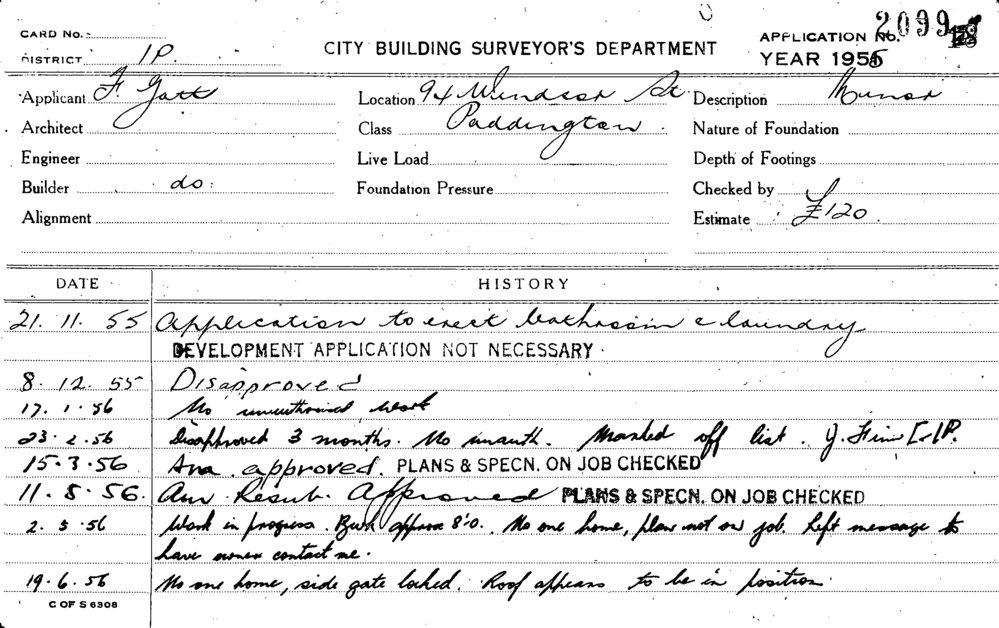 CARD No.
APPLICATION No. 2099
DISTRICT 1P.
CITY BUILDING SURVEYOR'S DEPARTMENT
YEAR 1955
Applicant F. Gatt
Location 94 Windsor St
Description Minor
Architect
Class Paddington.
Nature of Foundation
Engineer
Live Load
Depth of Footings
Builder do:
Foundation Pressure
Checked by
Alignment
Estimate £120.
DATE
HISTORY
21. 11. 55 Application to erect bathroom & laundry
DEVELOPMENT APPLICATION NOT NECESSARY.
8. 12. 55 Disapproved
17. 1. 56 No unauthorised work
23. 2. 56 Disapproved 3 months. No unauth. Marked off list.
15. 3. 56 approved. PLANS & SPECN. ON JOB CHECKED
11. 5. 56. Am. Resub. Approved PLANS & SPECN. ON JOB CHECKED
2. 5. 56 Work in progress. Bwk approx 8'0. No one home, plan not on job. Left message to
have owner contact me.
19. 6. 56 No one home, side gate locked. Roof appears to be in position.
C OF S 6308